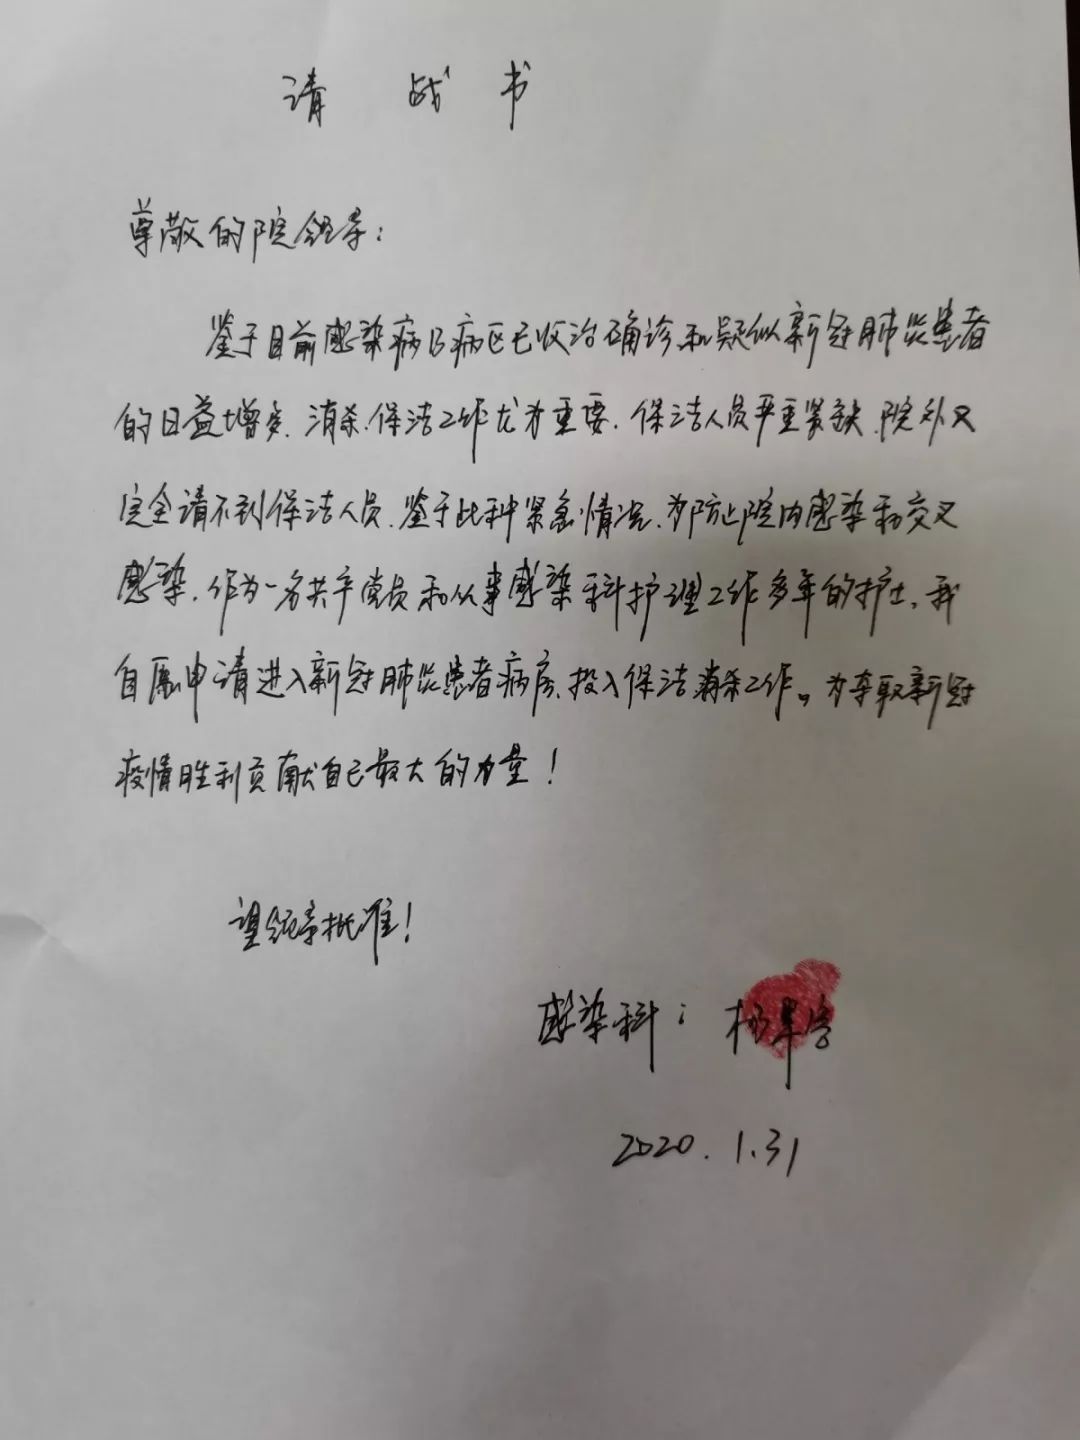 请战书
尊敬的院领导：
鉴于目前感染病B病区已收治确诊和疑似新冠肺炎患者
的日益增多、消杀、保洁工作尤为重要，保洁人员严重紧缺，院外又
完全请不到保洁人员，鉴于此种紧急情况，为防止院内感染和交叉
感染，作为一名共产党员和从事感染科护理工作多年的护士，我
自愿申请进入新冠肺炎患者病房，投入保洁消杀工作。为夺取新冠
疫情胜利贡献自己最大的力量！
望领导批准！
感染科：杨
2020.1.31